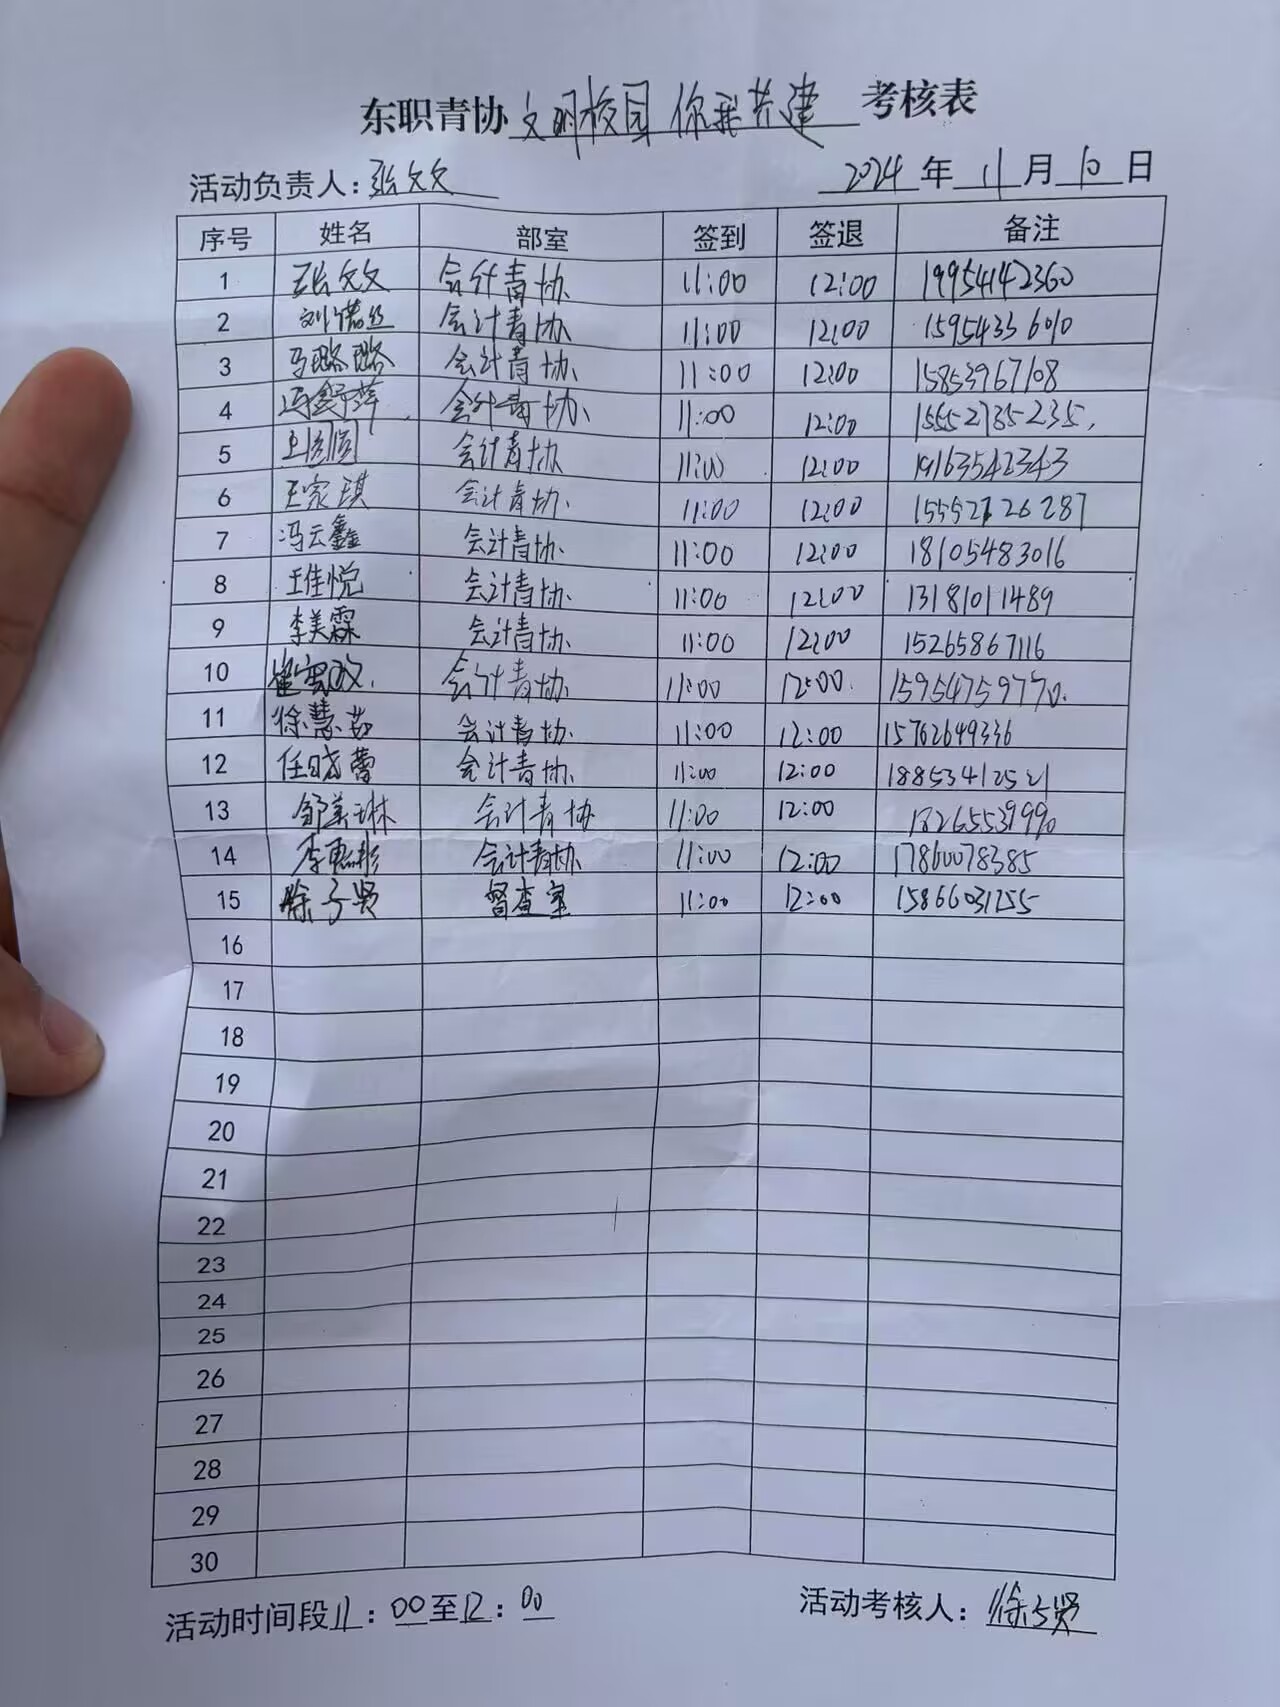 东职青协 文明校园 你我共建 考核表
活动负责人：张文文 2024 年 11 月 10 日
序号 姓名 部室 签到 签退 备注
1 张文文 会计青协 11:00 12:00 19954142360
2 会计青协 11:00 12:00 15954336010
3 马璐璐 会计青协 11:00 12:00 15853967108
4 冯舒萍 会计青协 11:00 12:00 15552785235
5 王圆圆 会计青协 11:00 12:00 19163542343
6 王家琪 会计青协 11:00 12:00
7 冯云鑫 会计青协 11:00 12:00 18105483016
8 王佳悦 会计青协 11:00 12:00 13181011489
9 李美霖 会计青协 11:00 12:00 15265867116
10 会计青协 11:00 12:00. 15954759770.
11 徐慧茹 会计青协 11:00 12:00 15762649336
12 任晓蕾 会计青协 11:00 12:00 18853412521
13 邹美琳 会计青协 11:00 12:00 18265539990
14 李惠彤 会计青协 11:00 12:00 17860078385
15 徐子贤 督查室 11:00 12:00 15866031255
16
17
18
19
20
21
22
23
24
25
26
27
28
29
30
活动时间段 11：00 至 12：00 活动考核人：徐子贤